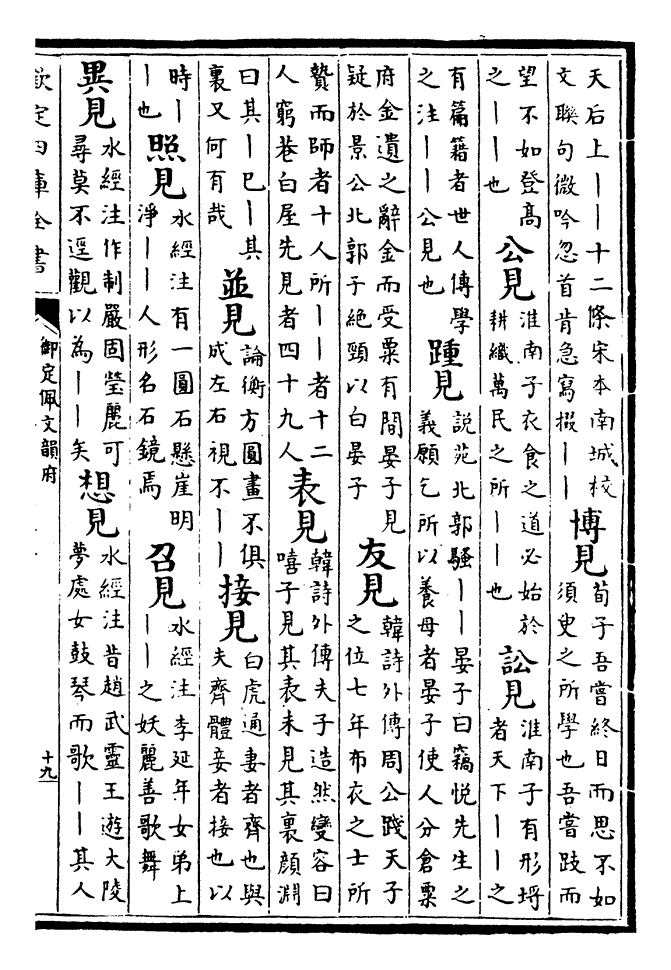 天后上｜｜十二條宋本南城校
文聯句微吟忽首肯急寫掇｜｜
博見
荀子吾嘗終日而思不如
須臾之所學也吾嘗跂而
望不如登高
之｜｜也
公見
淮南子衣食之道必始於
耕織萬民之所｜｜也
訟見
淮南子有形埒
者天下｜｜之
有篇籍者世人傳學
之注｜｜公見也
踵見
說苑北郭騷｜｜晏子曰竊悅先生之
義願乞所以養母者晏子使人分倉粟
府金遺之辭金而受粟有間晏子見
疑於景公北郭子絕頸以白晏子
友見
韓詩外傳周公踐天子
之位七年布衣之士所
贄而師者十人所｜｜者十二
人窮巷白屋先見者四十九人
表見
韓詩外傳夫子造然變容曰
嘻子見其表未見其裏顏淵
曰其｜已｜其
裏又何有哉
並見
論衡方圓畫不俱
成左右視不｜｜
接見
白虎通妻者齊也與
夫齊體妾者接也以
時｜
｜也
照見
水經注有一圓石懸崖明
淨｜｜人形名石鏡焉
召見
水經注李延年女弟上
｜｜之妖麗善歌舞
異見
水經注作制嚴固瑩麗可
尋莫不逕觀以為｜｜矣
想見
水經注昔趙武靈王遊大陵
夢處女鼓琴而歌｜｜其人
欽定四庫全書
御定佩文韻府
十九